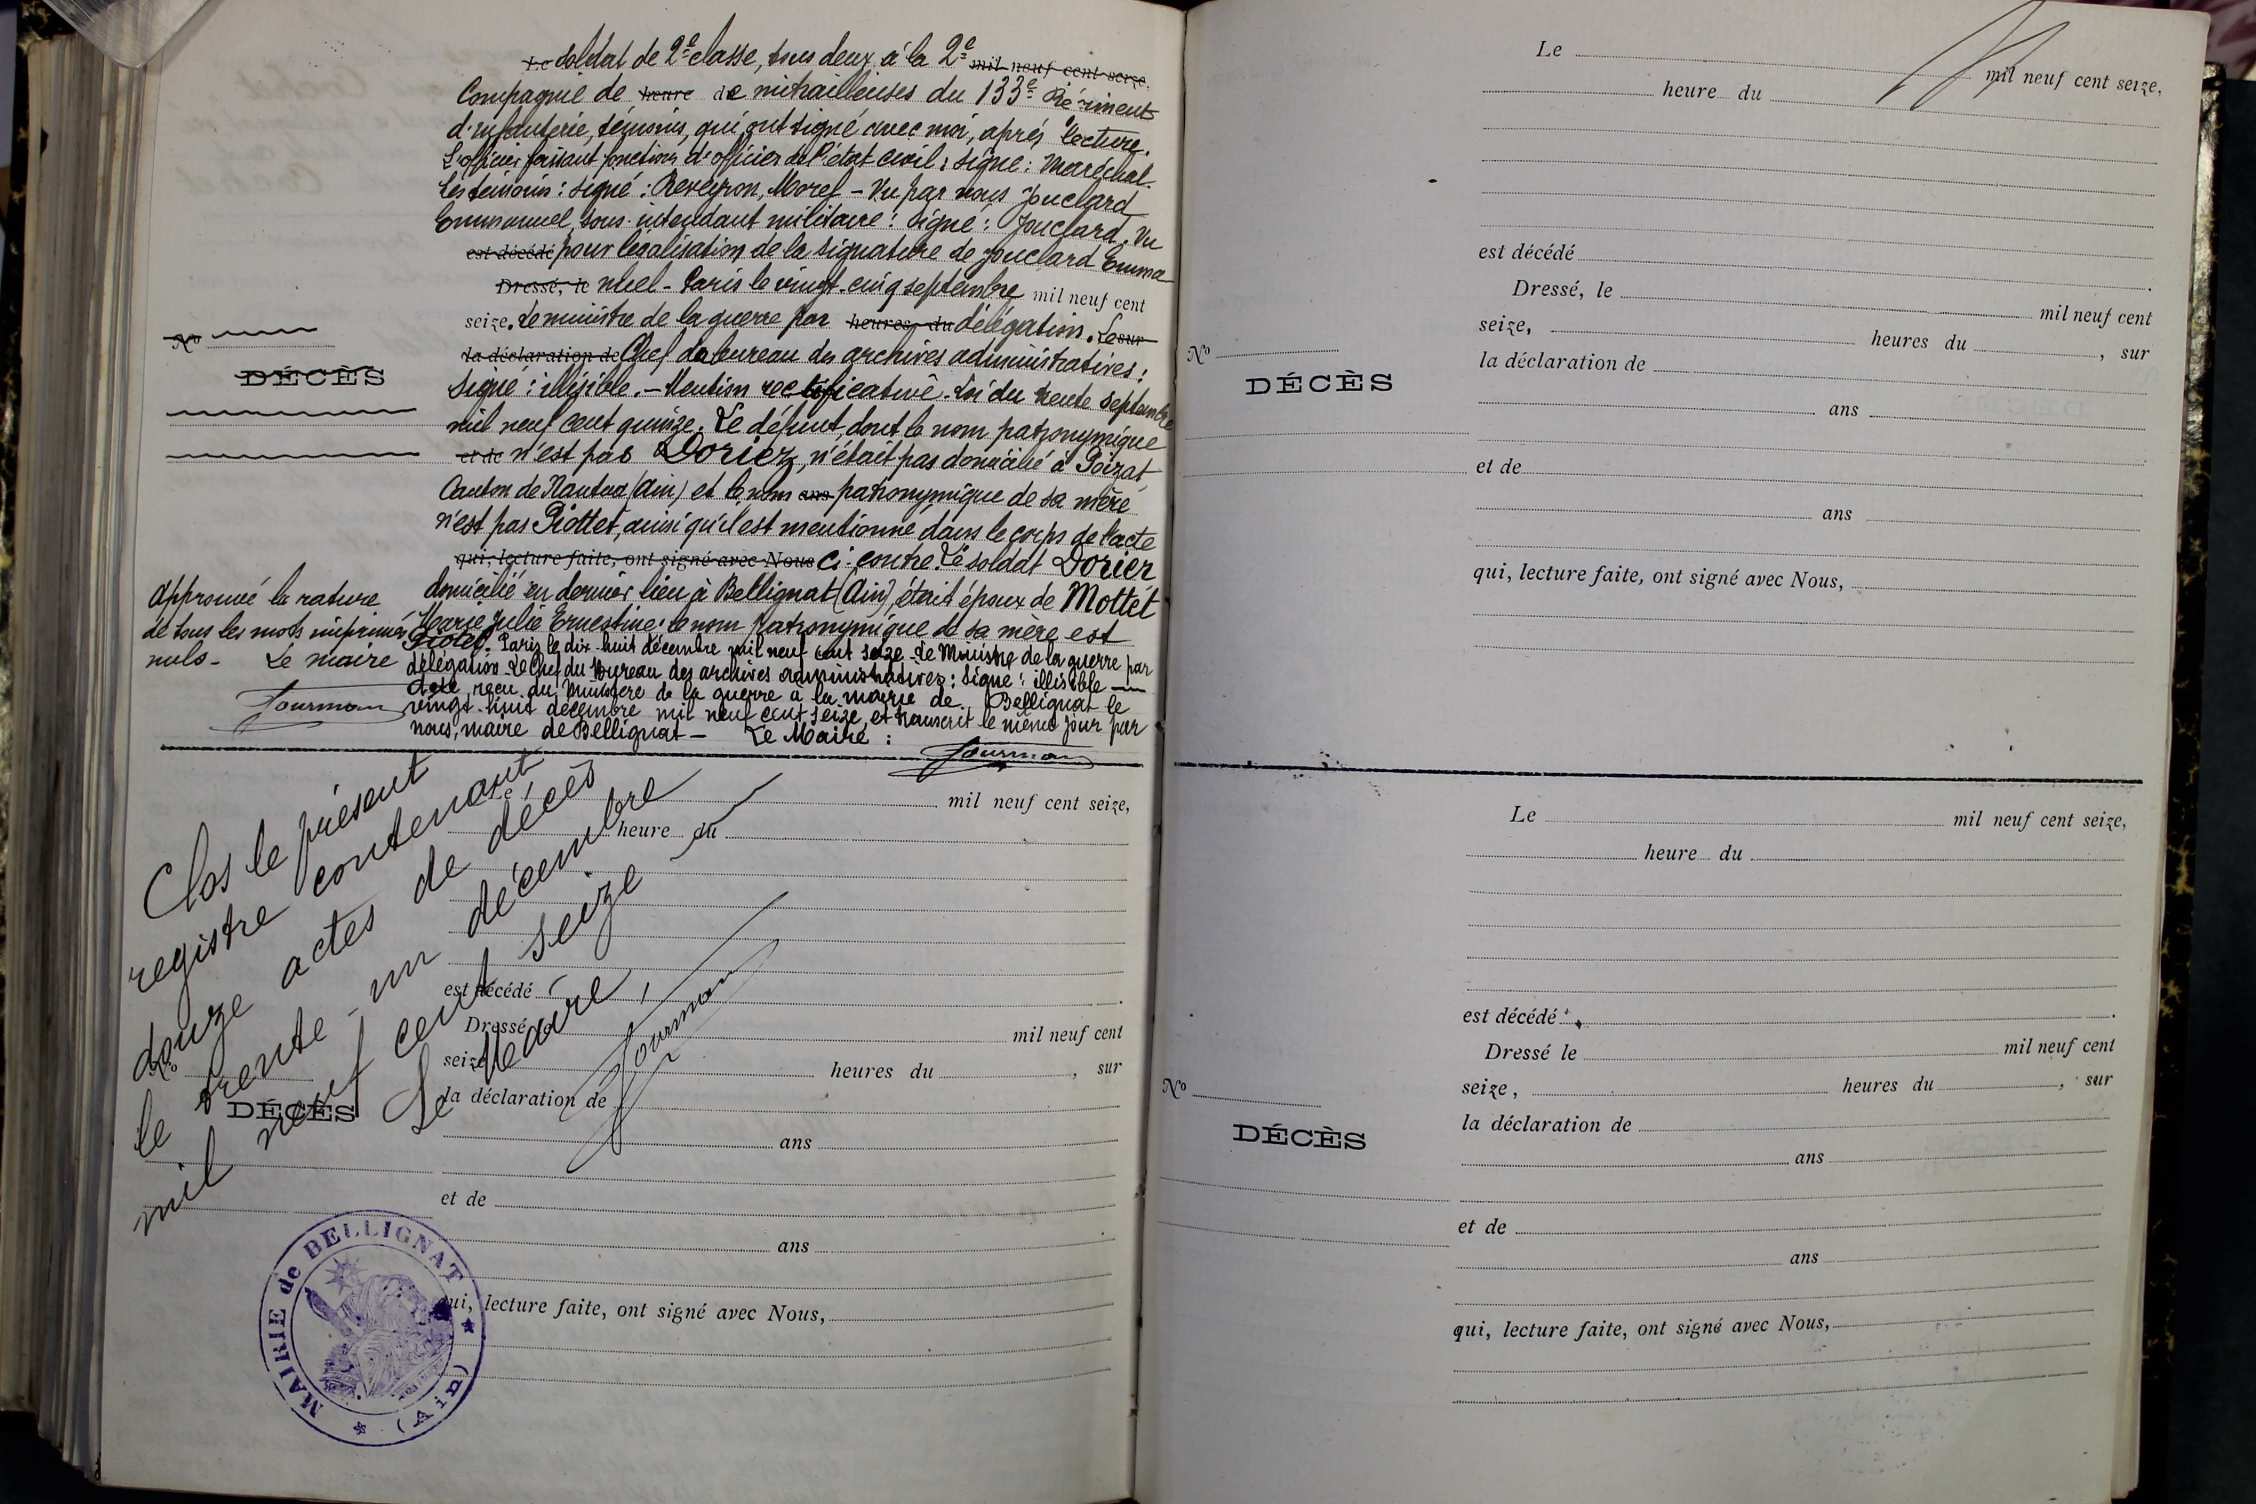 Le soldat de 2e classe, tous deux à la 2e mil neuf cent seize.
Compagnie de heure de mitrailleuses du 133e Régiment
d'infanterie, témoins, qui ont signé avec moi, après lecture.
L'officier faisant fonctions d'officier de l'état civil : signé : Maréchal.
Les témoins : signé : Reveyron, Morel – Vu par nous Jouclard
Emmanuel, sous-intendant militaire : signé : Jouclard. Vu
est décédé pour légalisation de la signature de Jouclard Emma
Dressé, le nuel – Paris le vingt-cinq septembre mil neuf cent
seize. Le ministre de la guerre par heures du délégation. Le sur
la déclaration de Chef du bureau des archives administratives :
Signé : illisible. – Mention rectificative. Loi du trente Septembre
mil neuf cent quinze. Le défunt, dont le nom patronymique
et de n'est pas Doriez, n'était pas domicilié à Poizat,
Canton de Nantua (Ain) et le nom ans patronymique de sa mère
n'est pas Piottet, ainsi qu'il est mentionné dans le corps de l'acte
qui, lecture faite, ont signé avec Nous ci-contre. Le soldat Dorier
domicilié en dernier lieu à Bellignat (Ain), était époux de Mottet
Marie Julie Ernestine : le nom patronymique de sa mère est
Piotet. Paris le dix-huit décembre mil neuf cent seize. Le Ministre de la guerre par
délégation. Le Chef du Bureau des archives administratives : Signé : illisible —
Acte reçu du Ministère de la guerre à la mairie de Bellignat le
vingt-huit décembre mil neuf cent seize, et transcrit le même jour par
nous, maire de Bellignat – Le Maire :
Fourman
No
DÉCÈS
Approuvé la rature
de tous les mots imprimés
nuls – Le maire
Fourman
Clos le présent
registre contenant
douze actes de décès
le trente-un décembre
mil neuf cent seize
Le Maire,
Fourman
Le mil neuf cent seize,
heure du
est décédé .
Dressé le mil neuf cent
seize, heures du , sur
No
DÉCÈS
la déclaration de
ans
et de
ans
qui, lecture faite, ont signé avec Nous,
MAIRIE de BELLIGNAT
(Ain)
Le mil neuf cent seize,
heure du
est décédé .
Dressé, le mil neuf cent
seize, heures du , sur
No
DÉCÈS
la déclaration de
ans
et de
ans
qui, lecture faite, ont signé avec Nous,
Le mil neuf cent seize,
heure du
est décédé .
Dressé le mil neuf cent
seize, heures du , sur
No
DÉCÈS
la déclaration de
ans
et de
ans
qui, lecture faite, ont signé avec Nous,